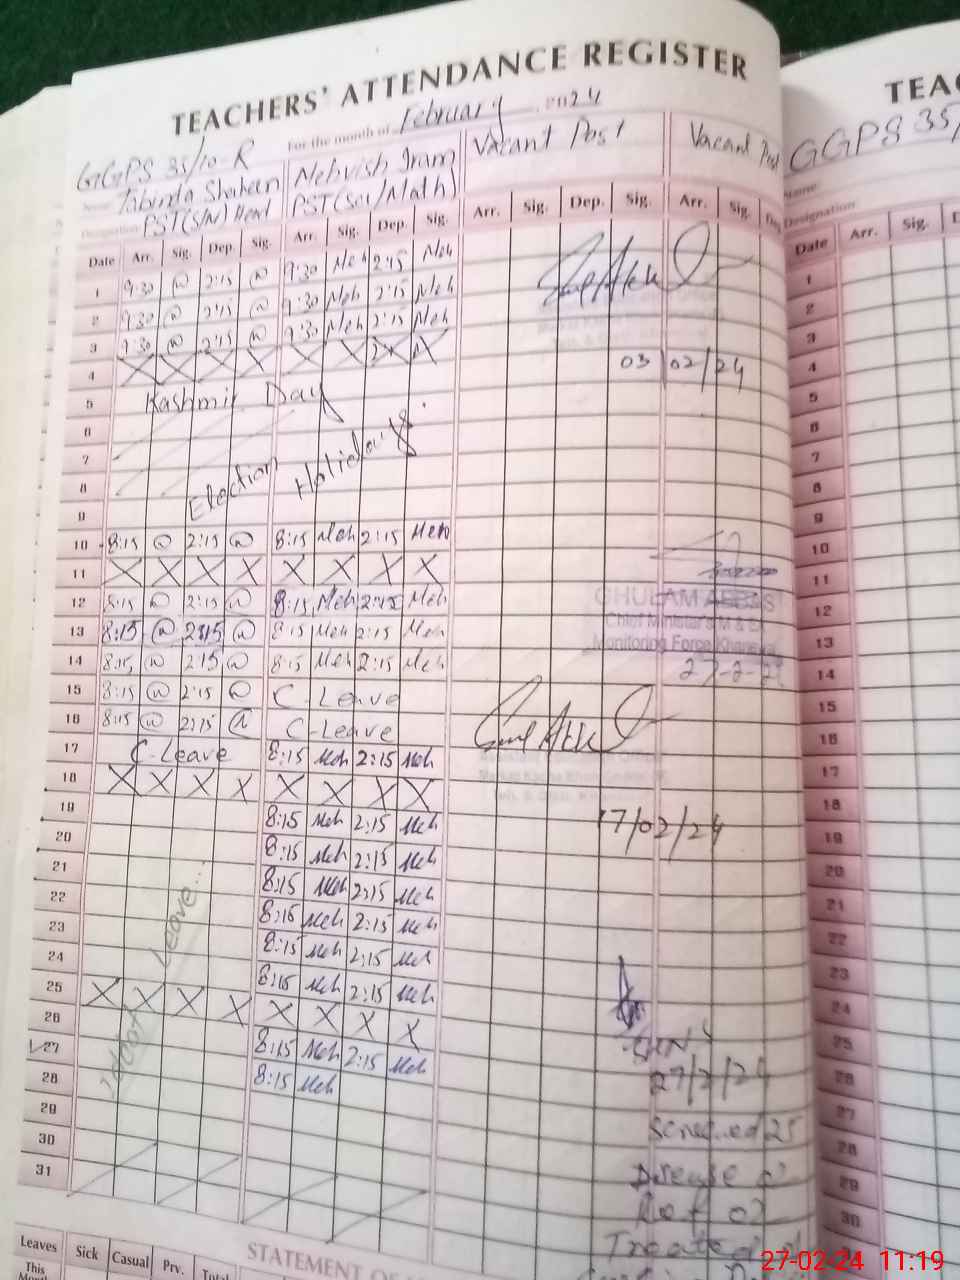 TEACHERS' ATTENDANCE REGISTER
For the month of February 2024
GGPS 35/10-R
Name Tabinda Shaheen Nehvish Iram Vacant Post Vacant Post
Designation PST(S/N) Head PST(Sci/Math)
Date Arr. Sig. Dep. Sig. Arr. Sig. Dep. Sig. Arr. Sig. Dep. Sig. Arr. Sig. Dep.
1 9:30 @ 2:15 @ 9:30 Meh 2:15 Meh
2 9:30 @ 2:15 @ 9:30 Meh 2:15 Meh
3 9:30 @ 2:15 @ 9:30 Meh 2:15 Meh
4 X X X X X X X X 03/02/24
5 Kashmir Day
6
7
8 Election Holidays
9
10 8:15 @ 2:15 @ 8:15 Meh 2:15 Meh
11 X X X X X X X X
12 8:15 @ 2:15 @ 8:15 Meh 2:15 Meh
GHULAM ABBAS
13 8:15 @ 2:15 @ 8:15 Meh 2:15 Meh
Chief Minister's M & E
14 8:15 @ 2:15 @ 8:15 Meh 2:15 Meh
Monitoring Force Khanewal
15 8:15 @ 2:15 @ C-Leave
16 8:15 @ 2:15 @ C-Leave
17 C-Leave 8:15 Meh 2:15 Meh
18 X X X X X X X X
19 8:15 Meh 2:15 Meh 17/02/24
20 8:15 Meh 2:15 Meh
21 8:15 Meh 2:15 Meh
22 8:15 Meh 2:15 Meh
23 8:15 Meh 2:15 Meh
24 8:15 Meh 2:15 Meh
Leave...
25 X X X X X X X X
26 8:15 Meh 2:15 Meh
27 8:15 Meh
27/2/24
28
29
30
31
Screened 25
Disease
Ref 02
Treated
Leaves Sick Casual Prv. Total
This
STATEMENT OF
TEAC
GGPS 35/
Name
Designation
Date Arr. Sig.
1
2
3
4
5
6
7
8
9
10
11
12
13
14
15
16
17
18
19
20
21
22
23
24
25
26
27
28
29
30
27-02-24 11:19